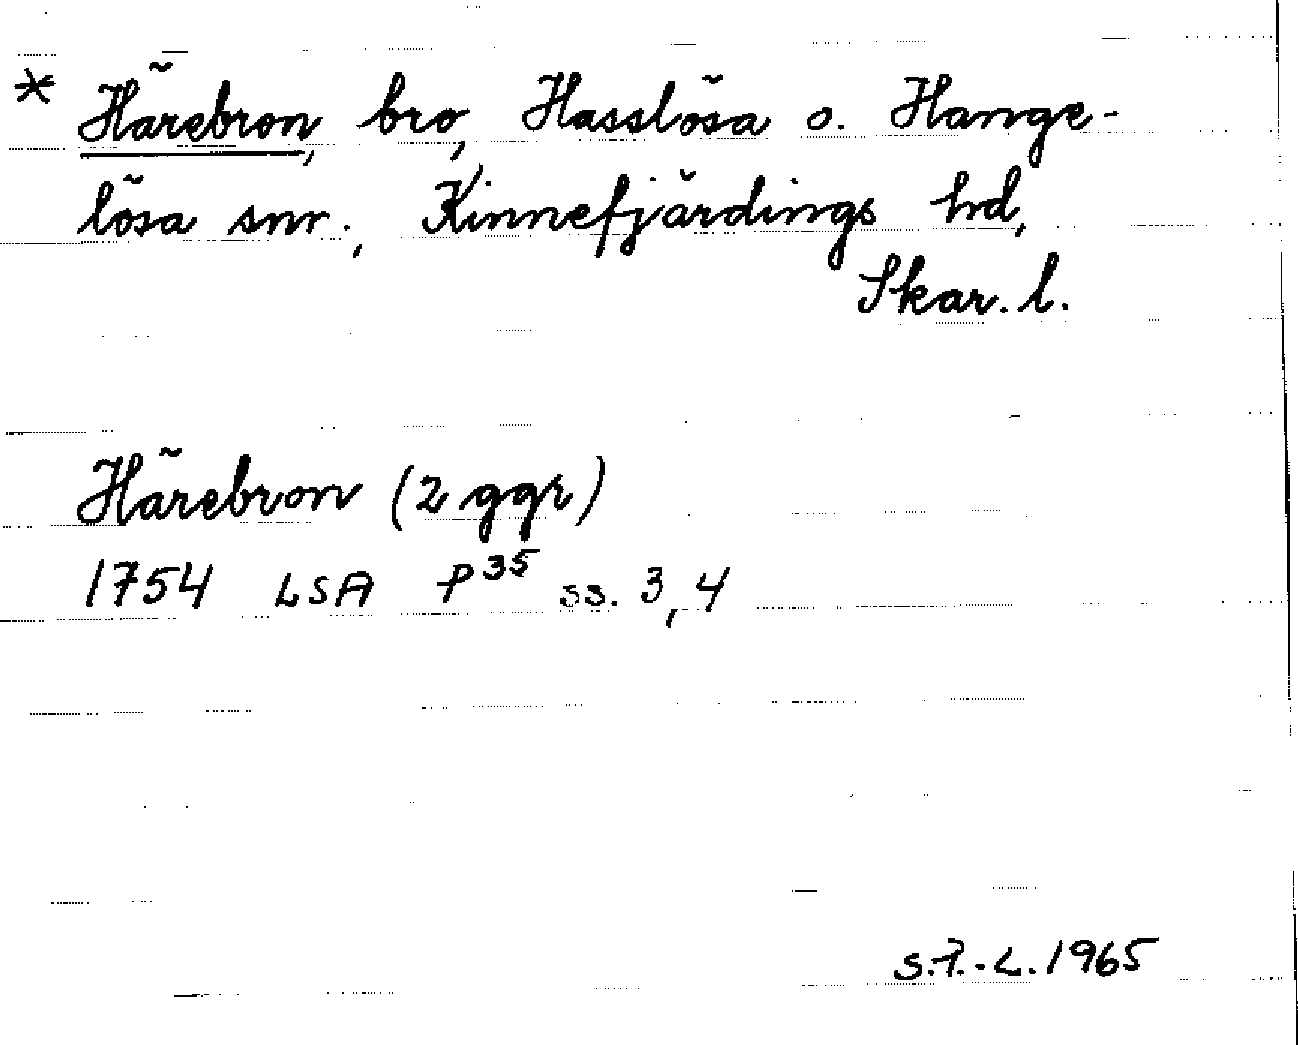 * Härebron, bro, Hasslösa o. Hange-
lösa snr., Kinnefjärdings hd,
Skar. l.
Härebron (2 ggr)
1754 LSA P35 ss. 3, 4
S.F.-L. 1965